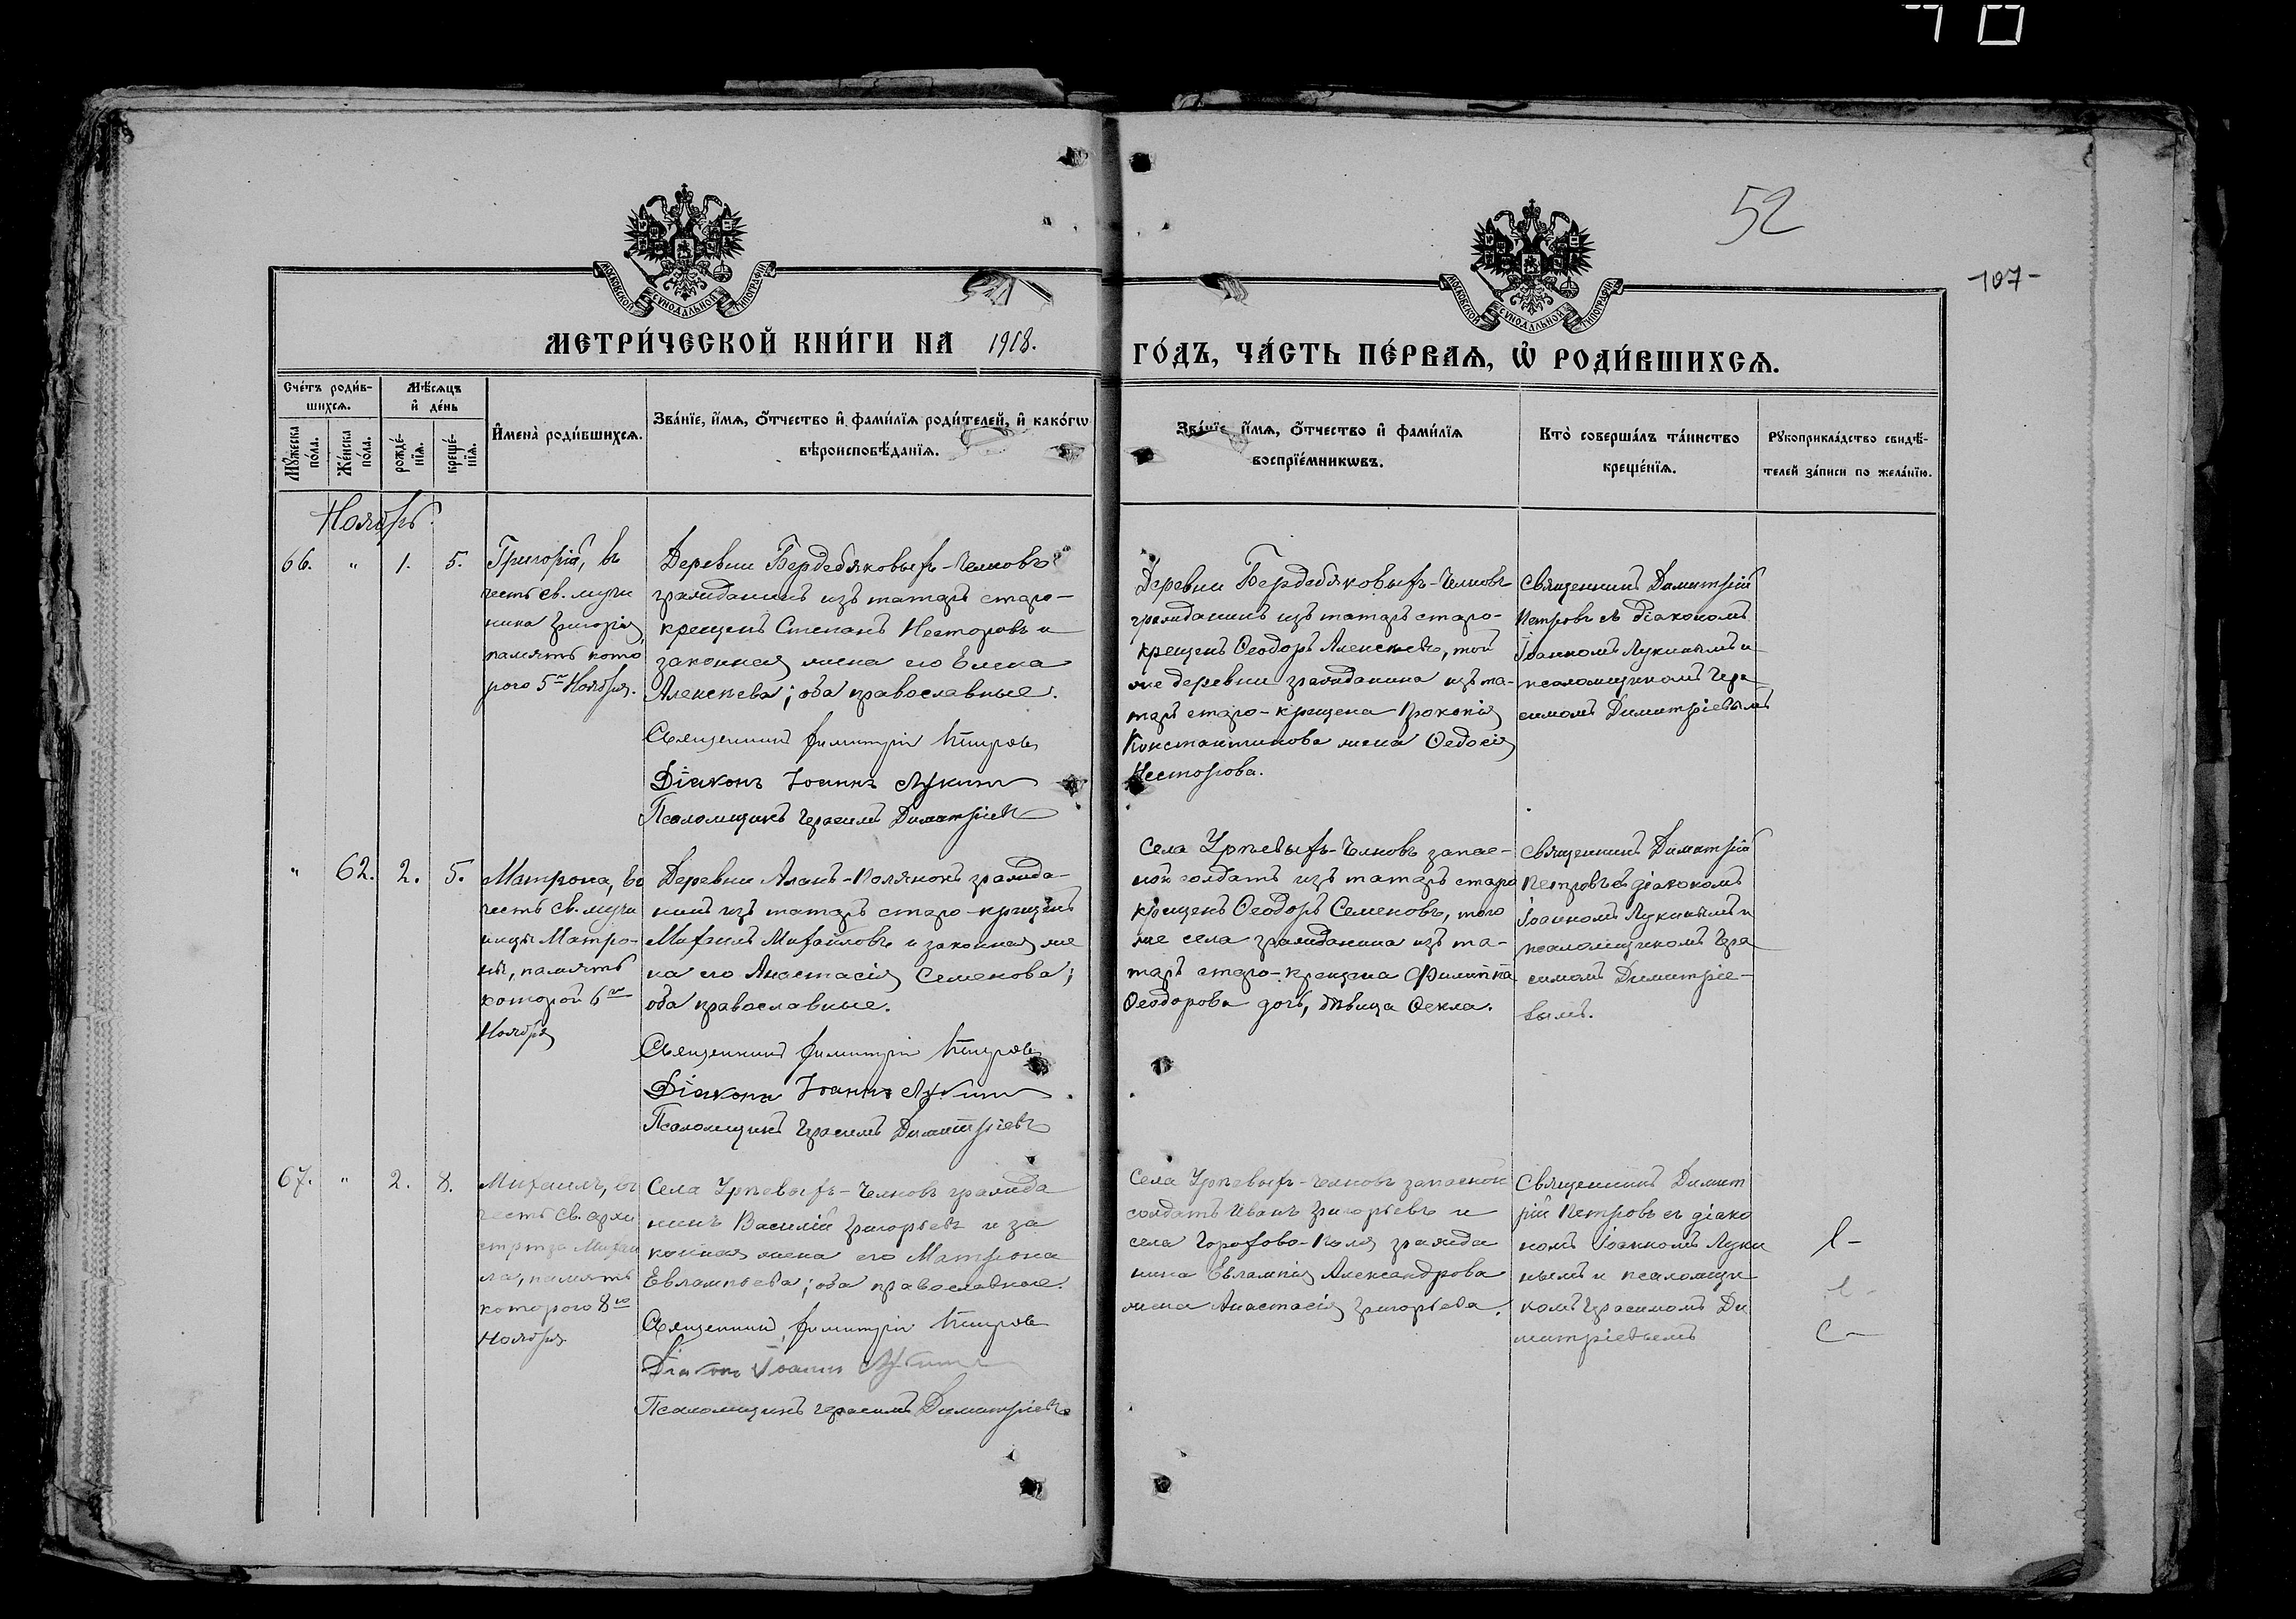 70
52
107-
МОСКОВСКОЙ СѴНОДАЛЬНОЙ ТИПОГРАФІИ
МОСКОВСКОЙ СѴНОДАЛЬНОЙ ТИПОГРАФІИ
МЕТРИ́ЧЕСКОЙ КНИ́ГИ НА 1918.
ГО́ДЪ, ЧА́СТЬ ПЕ́РВАѦ, Ѡ РОДИ́ВШИХСѦ.
Сче́тъ роди́в-
шихсѧ.
Мѣ́сѧцъ
и҆ де́нь
Мꙋ́жеска
по́ла.
Же́нска
по́ла.
рожде́-
нїѧ.
креще́-
нїѧ.
И҆мена̀ роди́вшихсѧ.
Зва́нїе, и҆́мѧ, о҆́тчество и҆ фами́лїѧ роди́телей, и҆ како́гѡ
вѣроисповѣ́данїѧ.
Зва́нїе, и҆́мѧ, о҆́тчество и҆ фами́лїѧ
воспрїе́мникѡвъ.
Кто̀ соверша́лъ та́инство
креще́нїѧ.
Рꙋкоприкла́дство свидѣ́-
телей за́писи по жела́нїю.
Ноябрь.
66. " 1. 5.
Григорій, въ
честь св. мучи
ника Григорія,
память кото
рого 5го Ноября.
Деревни Бердебяковыхъ-Челновъ
гражданинъ изъ татаръ старо-
крещенъ Степанъ Несторовъ и
законная жена его Елена
Алексѣева; оба православные.
Священникъ Димитрій Петровъ
Діаконъ Іоаннъ Лукинъ
Псаломщикъ Герасимъ Димитріевъ
Деревни Бердебяковыхъ-Челновъ
гражданинъ изъ татаръ старо-
крещенъ Ѳеодоръ Алексѣевъ, той
же деревни гражданина изъ та-
таръ старо-крещена Прокопія
Константинова жена Ѳедосія
Несторова.
Священникъ Димитрій
Петровъ съ діакономъ
Іоанномъ Лукинымъ и
псаломщикомъ Гера
симомъ Димитріевымъ
" 62. 2. 5.
Матрона, въ
честь св. мучи
ницы Матро-
ны, память
которой 6го
Ноября
Деревни Аланъ-Полянокъ гражда-
нинъ изъ татаръ старо-крещенъ
Михаилъ Михайловъ и законная же
на его Анастасія Семенова;
оба православные.
Священникъ Димитрій Петровъ
Діаконъ Іоаннъ Лукинъ
Псаломщикъ Герасимъ Димитріевъ
Села Урѣевыхъ-Челновъ запас-
ной солдатъ изъ татаръ старо
крещенъ Ѳеодоръ Семеновъ, того
же села гражданина изъ та-
таръ старо-крещена Филиппа
Ѳеодорова дочь, дѣвица Ѳекла.
Священникъ Димитрій
Петровъ съ діакономъ
Іоанномъ Лукинымъ и
псаломщикомъ Гера
симомъ Димитріе-
вымъ.
67. " 2. 8.
Михаилъ, въ
честь св. архи
стртга Михаи
ла, память
которого 8го
Ноября
Села Урѣевыхъ-Челновъ гражда
нинъ Василій Григорьевъ и за
конная жена его Матрона
Евлампьева; оба православные.
Священникъ Димитрій Петровъ
Діаконъ Іоаннъ Лукинъ
Псаломщикъ Герасимъ Димитріевъ
Села Урѣевыхъ-Челновъ запасной
солдатъ Иванъ Григорьевъ и
села Горохова-Поля гражда
нина Евлампія Александрова
жена Анастасія Григорьева.
Священникъ Димит
рій Петровъ съ діако
номъ Іоанномъ Луки
нымъ и псаломщи
комъ Герасимомъ Ди
митріевымъ